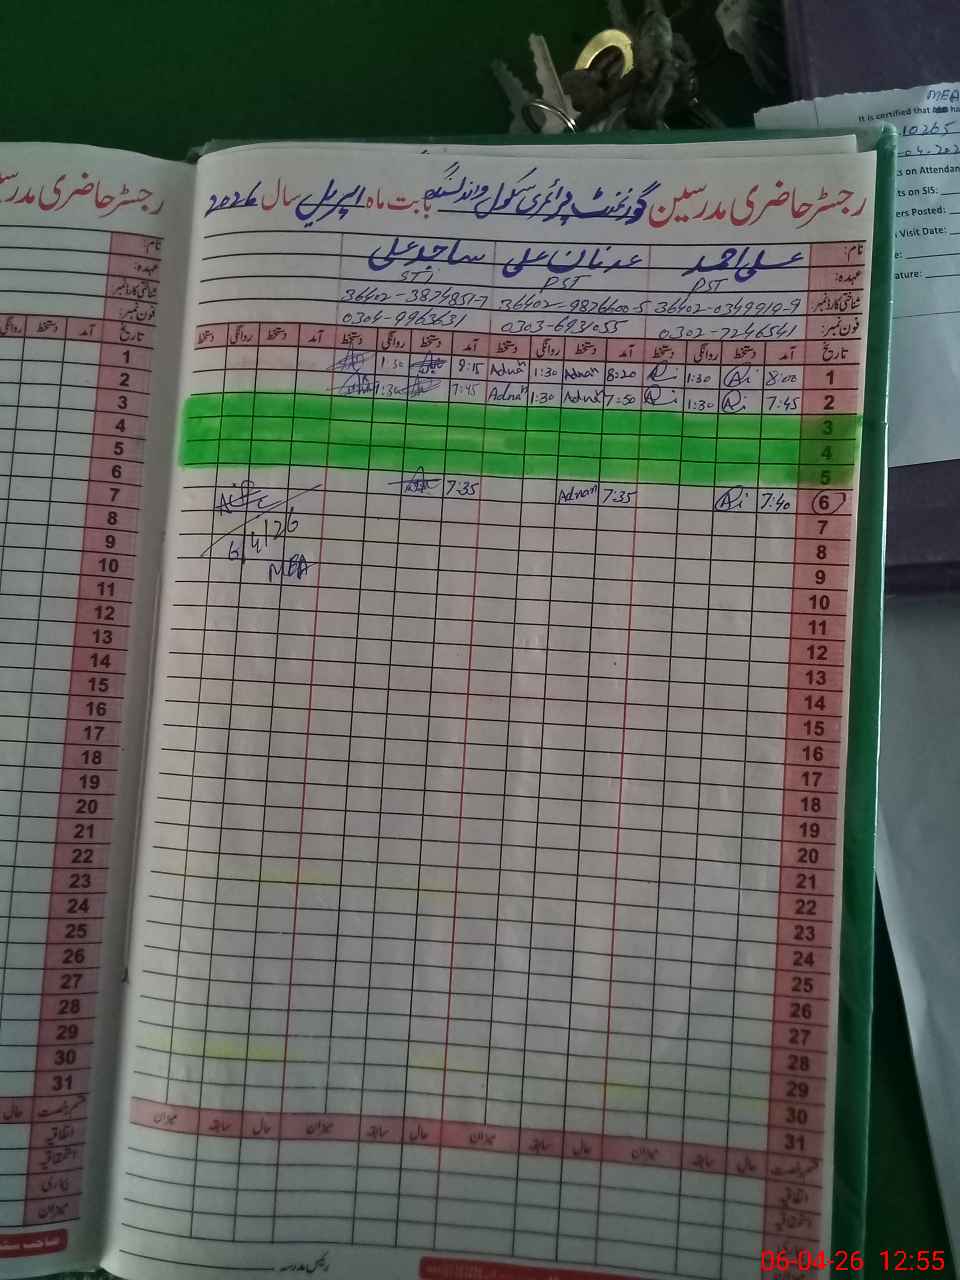 MEA
It is certified that
10265
04.202
on Attendan
ts on SIS:
ers Posted:
Visit Date:
ature:
رجسٹر حاضری مدرسین گورنمنٹ پرائمری سکول بابت ماہ اپریل سال 2026
نام: علی احمد عدنان علی ساجد علی
عہدہ: PST PST STI
شناختی کارڈ نمبر: 36402-0349919-9 36402-9876600-5 36402-3874851-7
فون نمبر: 0302-7246541 0303-6931055 0304-9963631
تاریخ آمد دستخط روانگی دستخط آمد دستخط روانگی دستخط آمد دستخط روانگی دستخط آمد دستخط روانگی دستخط
1 8:00 Ali 1:30 Ali 8:20 Adnan 1:30 Adnan 8:15 1:30
2 7:45 Ali 1:30 Ali 7:50 Adnan 1:30 Adnan 7:45 1:30
3
4
5
6 7:40 Ali 7:35 Adnan 7:35
7
8 6/4/26
9 MEA
10
11
12
13
14
15
16
17
18
19
20
21
22
23
24
25
26
27
28
29
30
31 حال سابقہ میزان حال سابقہ میزان حال سابقہ میزان حال سابقہ میزان
اتفاقیہ
رئیس مدرسہ
رجسٹر حاضری مدرسین
نام:
عہدہ:
شناختی کارڈ نمبر:
فون نمبر:
تاریخ آمد دستخط روانگی دستخط
1
2
3
4
5
6
7
8
9
10
11
12
13
14
15
16
17
18
19
20
21
22
23
24
25
26
27
28
29
30
31
حال
اتفاقیہ
میزان
06-04-26 12:55